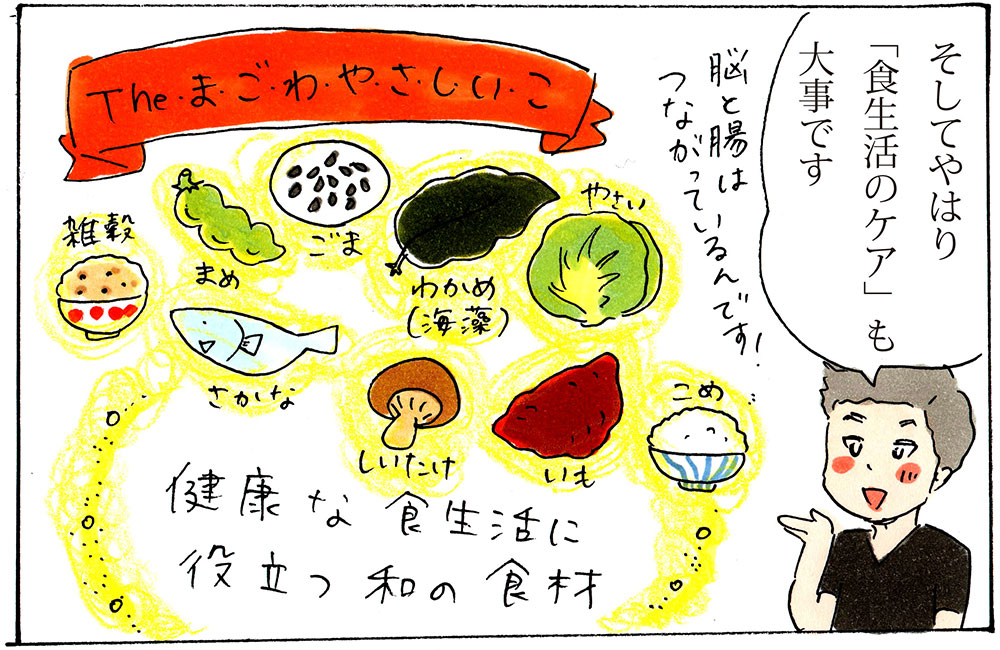 そしてやはり
「食生活のケア」も
大事です
脳と腸は
つながっているんです!
The・ま・ご・わ・や・さ・し・い・こ
雑穀
まめ
ごま
わかめ
(海藻)
やさい
さかな
しいたけ
いも
こめ
健康な食生活に
役立つ和の食材